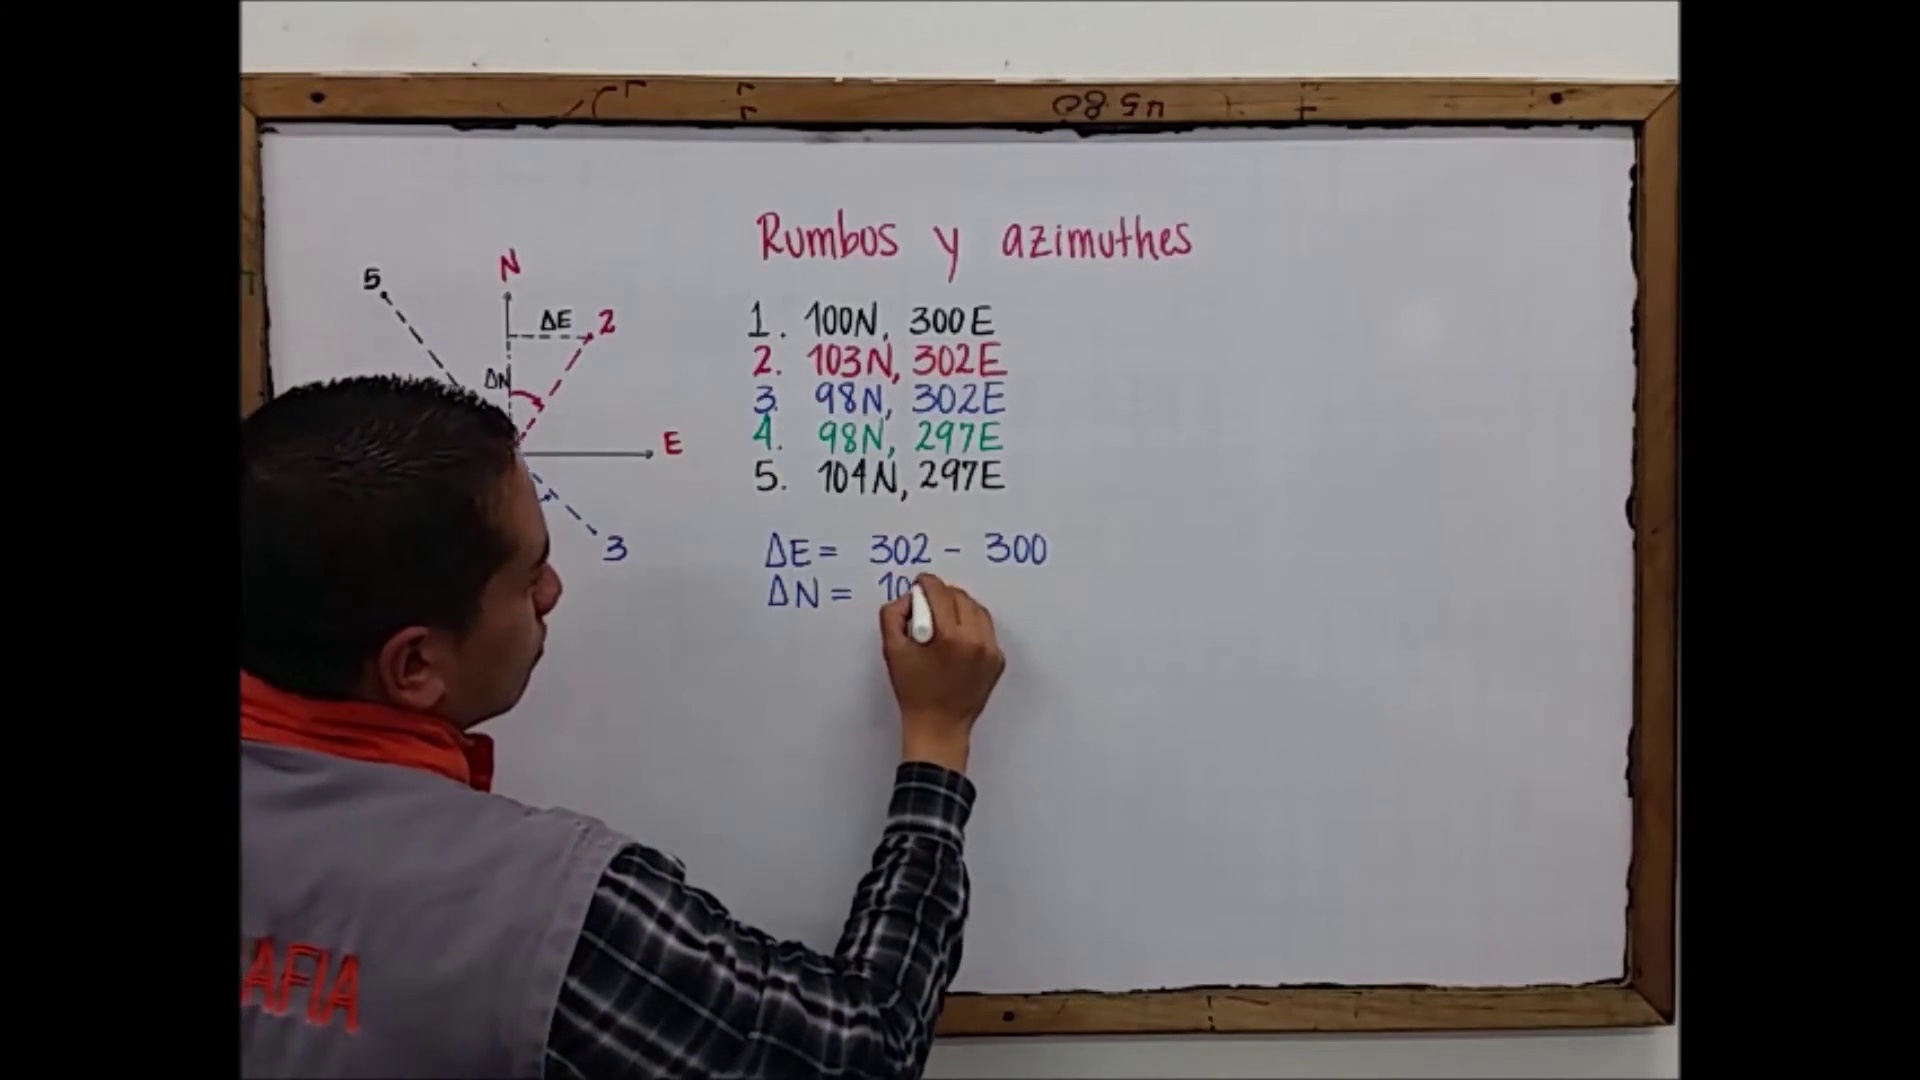 Rumbos y azimuthes
5
N
ΔE
2
ΔN
E
3
1. 100N, 300E
2. 103N, 302E
3. 98N, 302E
4. 98N, 297E
5. 104N, 297E
ΔE = 302 - 300
ΔN = 10
AFIA